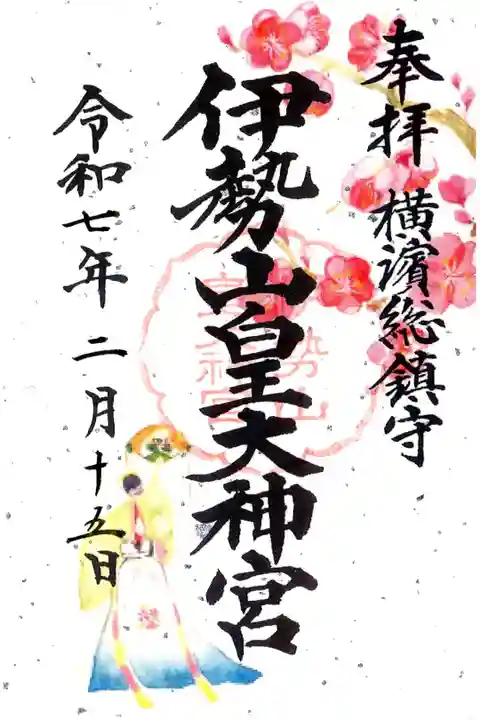 奉拝
横濱総鎮守
伊勢山皇大神宮
令和七年二月十五日